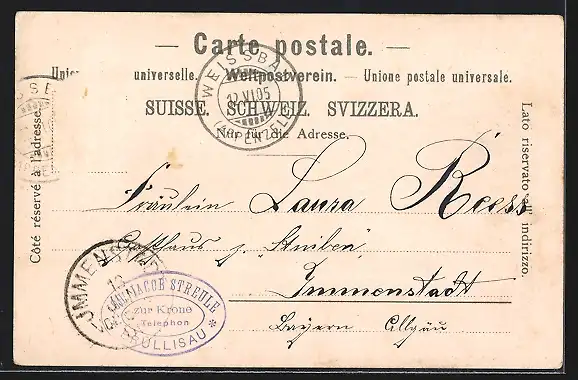 — Carte postale. —
universelle. — Weltpostverein. — Unione postale universale.
SUISSE. SCHWEIZ. SVIZZERA.
Nur für die Adresse.
Côté réservé à l'adresse.
Lato riservato all' indirizzo.
WEISSBAD
12.VI.05
(APPENZELL)
Fräulein Laura Reess
Gasthaus z. "Stuiben"
Immenstadt
Bayern Allgäu
IMMENSTADT
JACOB STREULE
zur Krone
Telephon
BRÜLLISAU *